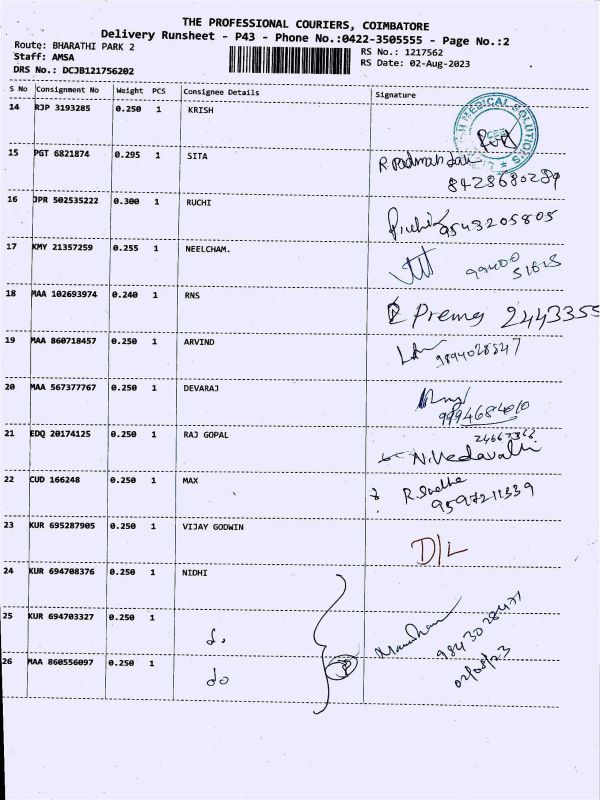 THE PROFESSIONAL COURIERS, COIMBATORE
Delivery Runsheet - P43 - Phone No.:0422-3505555 - Page No.:2
Route: BHARATHI PARK 2
RS No.: 1217562
Staff: AMSA
RS Date: 02-Aug-2023
DRS No.: DCJB121756202
S No Consignment No Weight PCS Consignee Details Signature
14 RJP 3193285 0.250 1 KRISH
MEDICAL SOLUTIONS
15 PGT 6821874 0.295 1 SITA
8428680289
16 JPR 502535222 0.300 1 RUCHI
9543205805
17 KMY 21357259 0.255 1 NEELCHAM.
18 MAA 102693974 0.240 1 RNS Prema 2443355
19 MAA 860718457 0.250 1 ARVIND
9894028547
20 MAA 567377767 0.250 1 DEVARAJ
9994684010
21 EDQ 20174125 0.250 1 RAJ GOPAL
N.Vedavalli
22 CUD 166248 0.250 1 MAX
9597211339
23 KUR 695287905 0.250 1 VIJAY GODWIN
D/L
24 KUR 694708376 0.250 1 NIDHI
25 KUR 694703327 0.250 1 do
9843028471
26 MAA 860556097 0.250 1 do
02/08/23